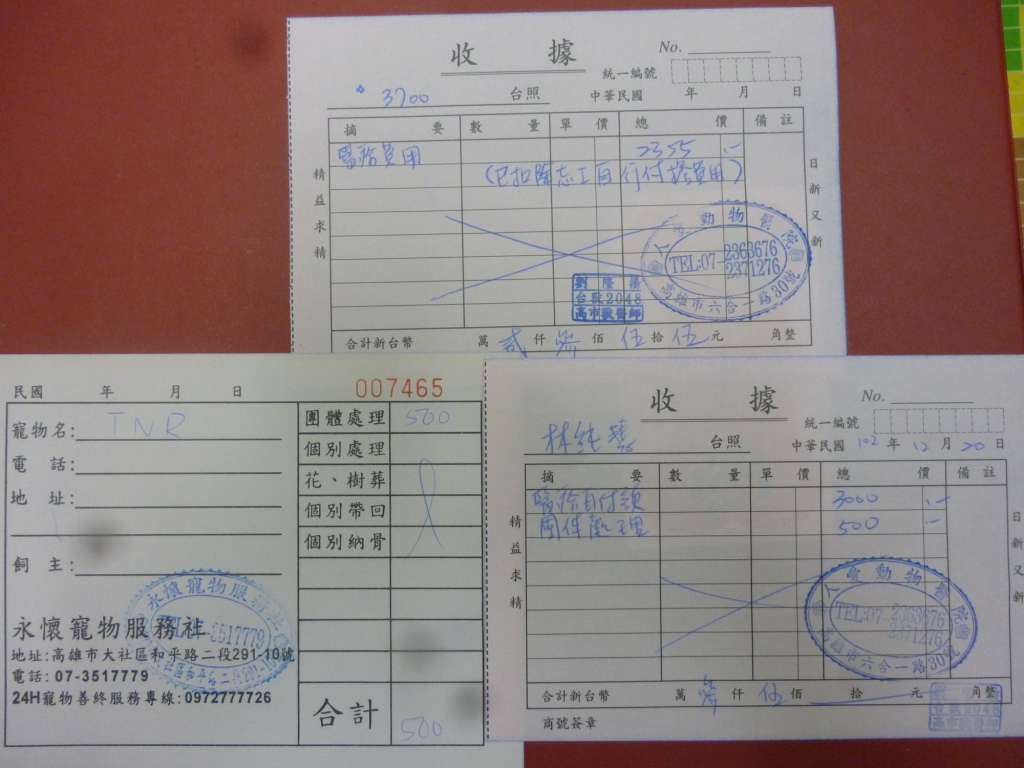 收 據
No.
統一編號
3700 台照 中華民國 年 月 日
摘 要 數 量 單 價 總 價 備 註
醫療費用 2355 .-
(已扣除志工自行付擔費用)
精益求精
日新又新
動物醫院
TEL:07-2363676
2371276
高雄市六合一路30號
劉隆揚
台獸2048
高市獸醫師
合計新台幣 萬 貳 仟 參 佰 伍 拾 伍 元 角整
民國 年 月 日 007465
寵物名: TNR
電 話:
地 址:
飼 主:
團體處理 500
個別處理
花、樹葬
個別帶回
個別納骨
合計 500
永懷寵物服務社
永懷寵物服務社
地址:高雄市大社區和平路二段291-10號
電話: 07-3517779
24H寵物善終服務專線:0972777726
收 據
No.
統一編號
林純 台照 中華民國 102 年 12 月 20 日
摘 要 數 量 單 價 總 價 備 註
醫療自付額 3000 .-
團体處理 500 .-
精益求精
日新又新
動物醫院
TEL:07-2363676
2371276
高雄市六合一路30號
合計新台幣 萬 參 仟 伍 佰 拾 元 角整
台獸2048
高市獸醫師
商號簽章